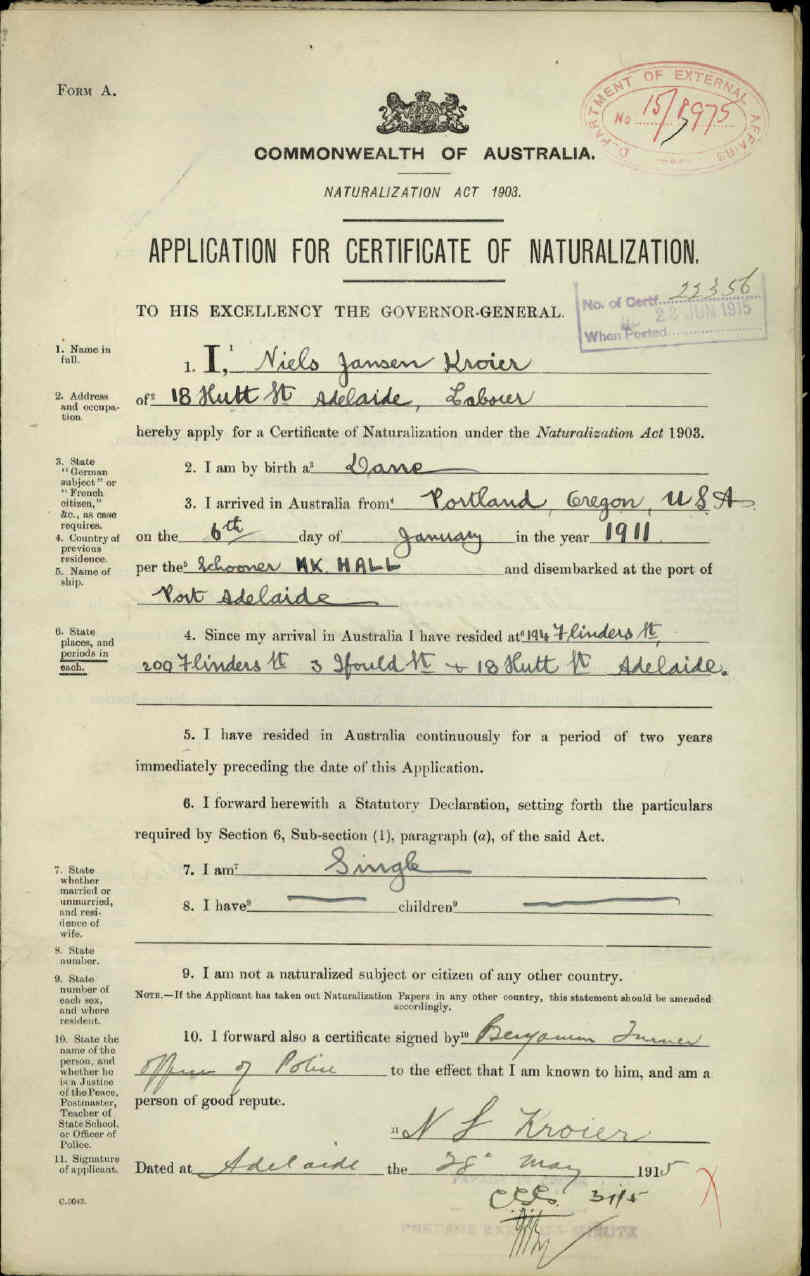 FORM A.
DEPARTMENT OF EXTERNAL AFFAIRS
No. 15/8975
COMMONWEALTH OF AUSTRALIA.
NATURALIZATION ACT 1903.
APPLICATION FOR CERTIFICATE OF NATURALIZATION.
No. of Certf. 22356
22 JUN 1915
When Posted
TO HIS EXCELLENCY THE GOVERNOR-GENERAL.
1. Name in full.
1. I,¹ Niels Jansen Kroier
2. Address and occupation.
of² 18 Hutt St Adelaide, Laborer
hereby apply for a Certificate of Naturalization under the Naturalization Act 1903.
3. State "German subject" or "French citizen," &c., as case requires.
2. I am by birth a³ Dane
3. I arrived in Australia from⁴ Portland, Oregon, U S A
4. Country of previous residence.
on the 6th day of January in the year 1911
5. Name of ship.
per the⁵ Schooner HK HALL and disembarked at the port of
Port Adelaide
6. State places, and periods in each.
4. Since my arrival in Australia I have resided at⁶ 194 Flinders St,
209 Flinders St 3 Ifould St + 18 Hutt St Adelaide.
5. I have resided in Australia continuously for a period of two years
immediately preceding the date of this Application.
6. I forward herewith a Statutory Declaration, setting forth the particulars
required by Section 6, Sub-section (1), paragraph (a), of the said Act.
7. State whether married or unmarried, and residence of wife.
7. I am⁷ Single
8. I have⁸ children⁹
8. State number.
9. State number of each sex, and where resident.
9. I am not a naturalized subject or citizen of any other country.
NOTE.—If the Applicant has taken out Naturalization Papers in any other country, this statement should be amended
accordingly.
10. State the name of the person, and whether he is a Justice of the Peace, Postmaster, Teacher of State School, or Officer of Police.
10. I forward also a certificate signed by¹⁰ Benjamin Turner
officer of Police to the effect that I am known to him, and am a
person of good repute.
11. Signature of applicant.
¹¹ N J Kroier
Dated at Adelaide the 28th May 1915
C.5043.